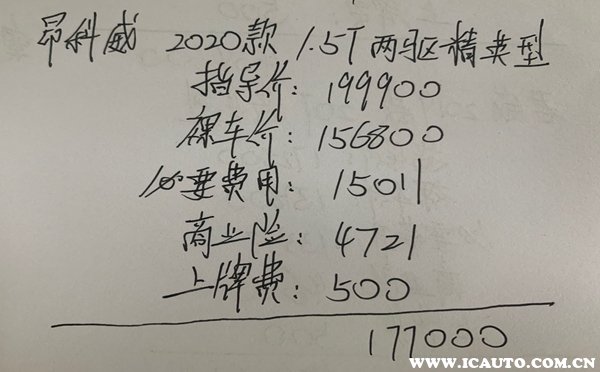 昂科威 2020款 1.5T两驱精英型
指导价：199900
裸车价：156800
必要费用：15011
商业险：4721
上牌费：500
177000
WWW.ICAUTO.COM.CN